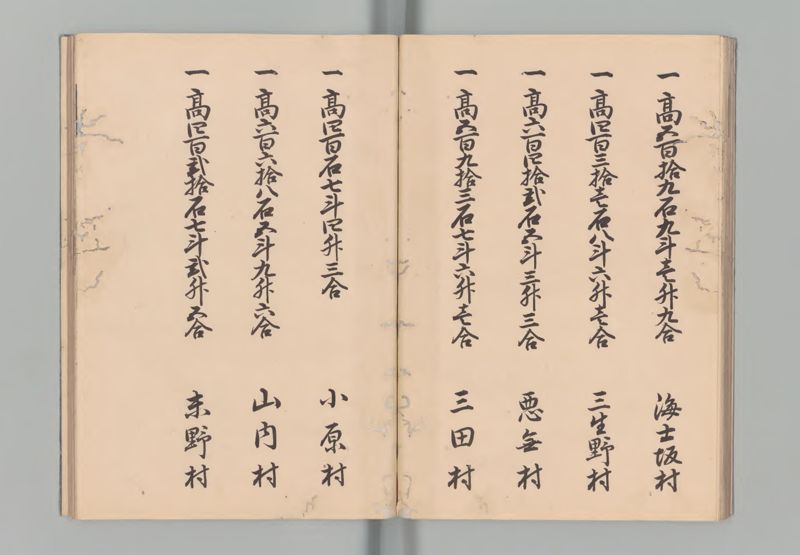 一 高五百拾九石九斗壱升九合 海士坂村
一 高四百三拾壱石八斗六升壱合 三生野村
一 高六百四拾弐石五斗三升三合 悪無村
一 高五百九拾三石七斗六升壱合 三田村
一 高四百石七斗四升三合 小原村
一 高六百六拾八石五斗九升六合 山内村
一 高四百弐拾石七斗弐升五合 末野村